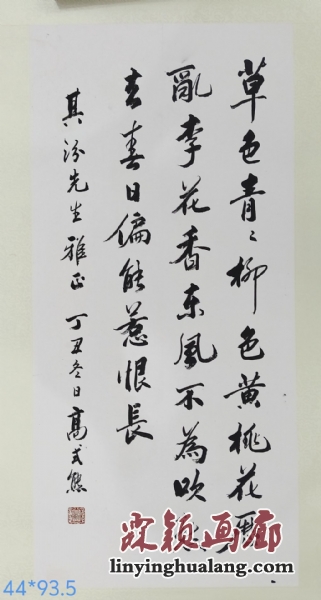 草色青〻柳色黄桃花歷
亂李花香東風不為吹
去春日偏能惹恨長
其汾先生雅正 丁丑冬日 高式熊
霖颖画廊
linyinghualang.com
44*93.5